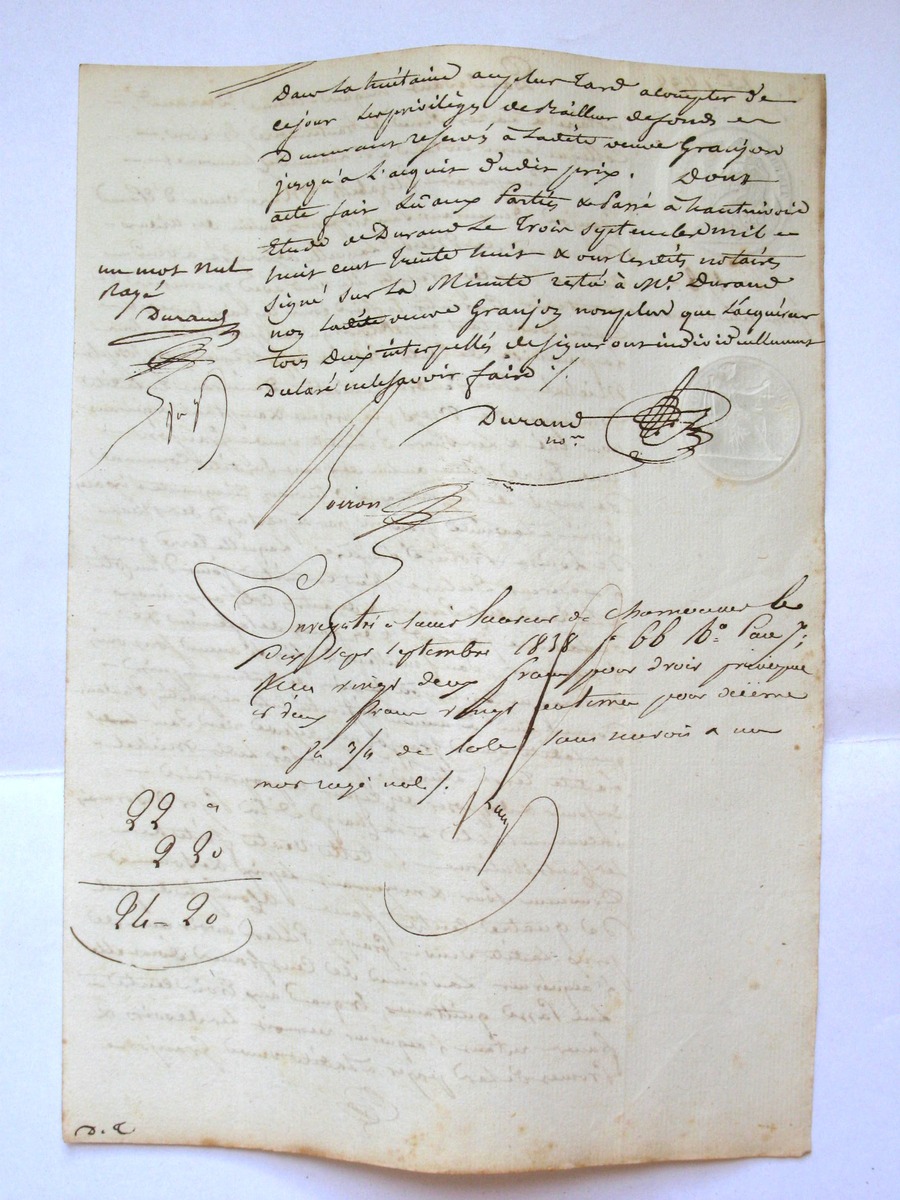 Dans la huitaine au plus tard a compter de
ce jour les privilèges de Bailleur de fonds en
Demeurant reservés à Ladite veuve Granjon
jusqu'a L'acquit dudit prix. Dont
acte fait Lu aux Parties & Passé à hauterivoir
Etude de Durand Le Trois septembre mil
huit cent trente huit & ont lesdits notaires
signé sur La Minute resté à Me. Durand
non Ladite veuve Granjon non plus que L'acquereur
tous Deux interpellés de signer ont individuellement
Declaré ne le savoir faire ./
un mot nul
Rayé
Durand
Durand
nore
Boiron
Enregistré a Saint Laurent de Chamousset le
Dix sept septembre 1838 fo 66 Ro Case 7e
reçu vingt deux francs pour droit principal
et deux francs vingt centimes pour décime
sans renvois a un
mot rayé nul ./.
22 "
2 20
24 - 20
D. E